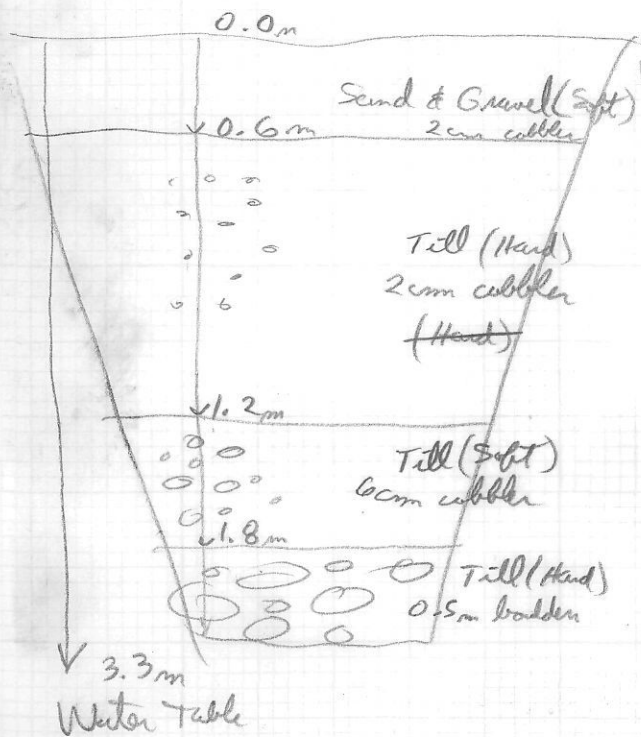 0.0m
Sand & Gravel (Soft)
0.6m
2cm cobbles
Till (Hard)
2cm cobbles
(Hard)
1.2m
Till (Soft)
6cm cobbles
1.8m
Till (Hard)
0.5m boulders
3.3m
Water Table